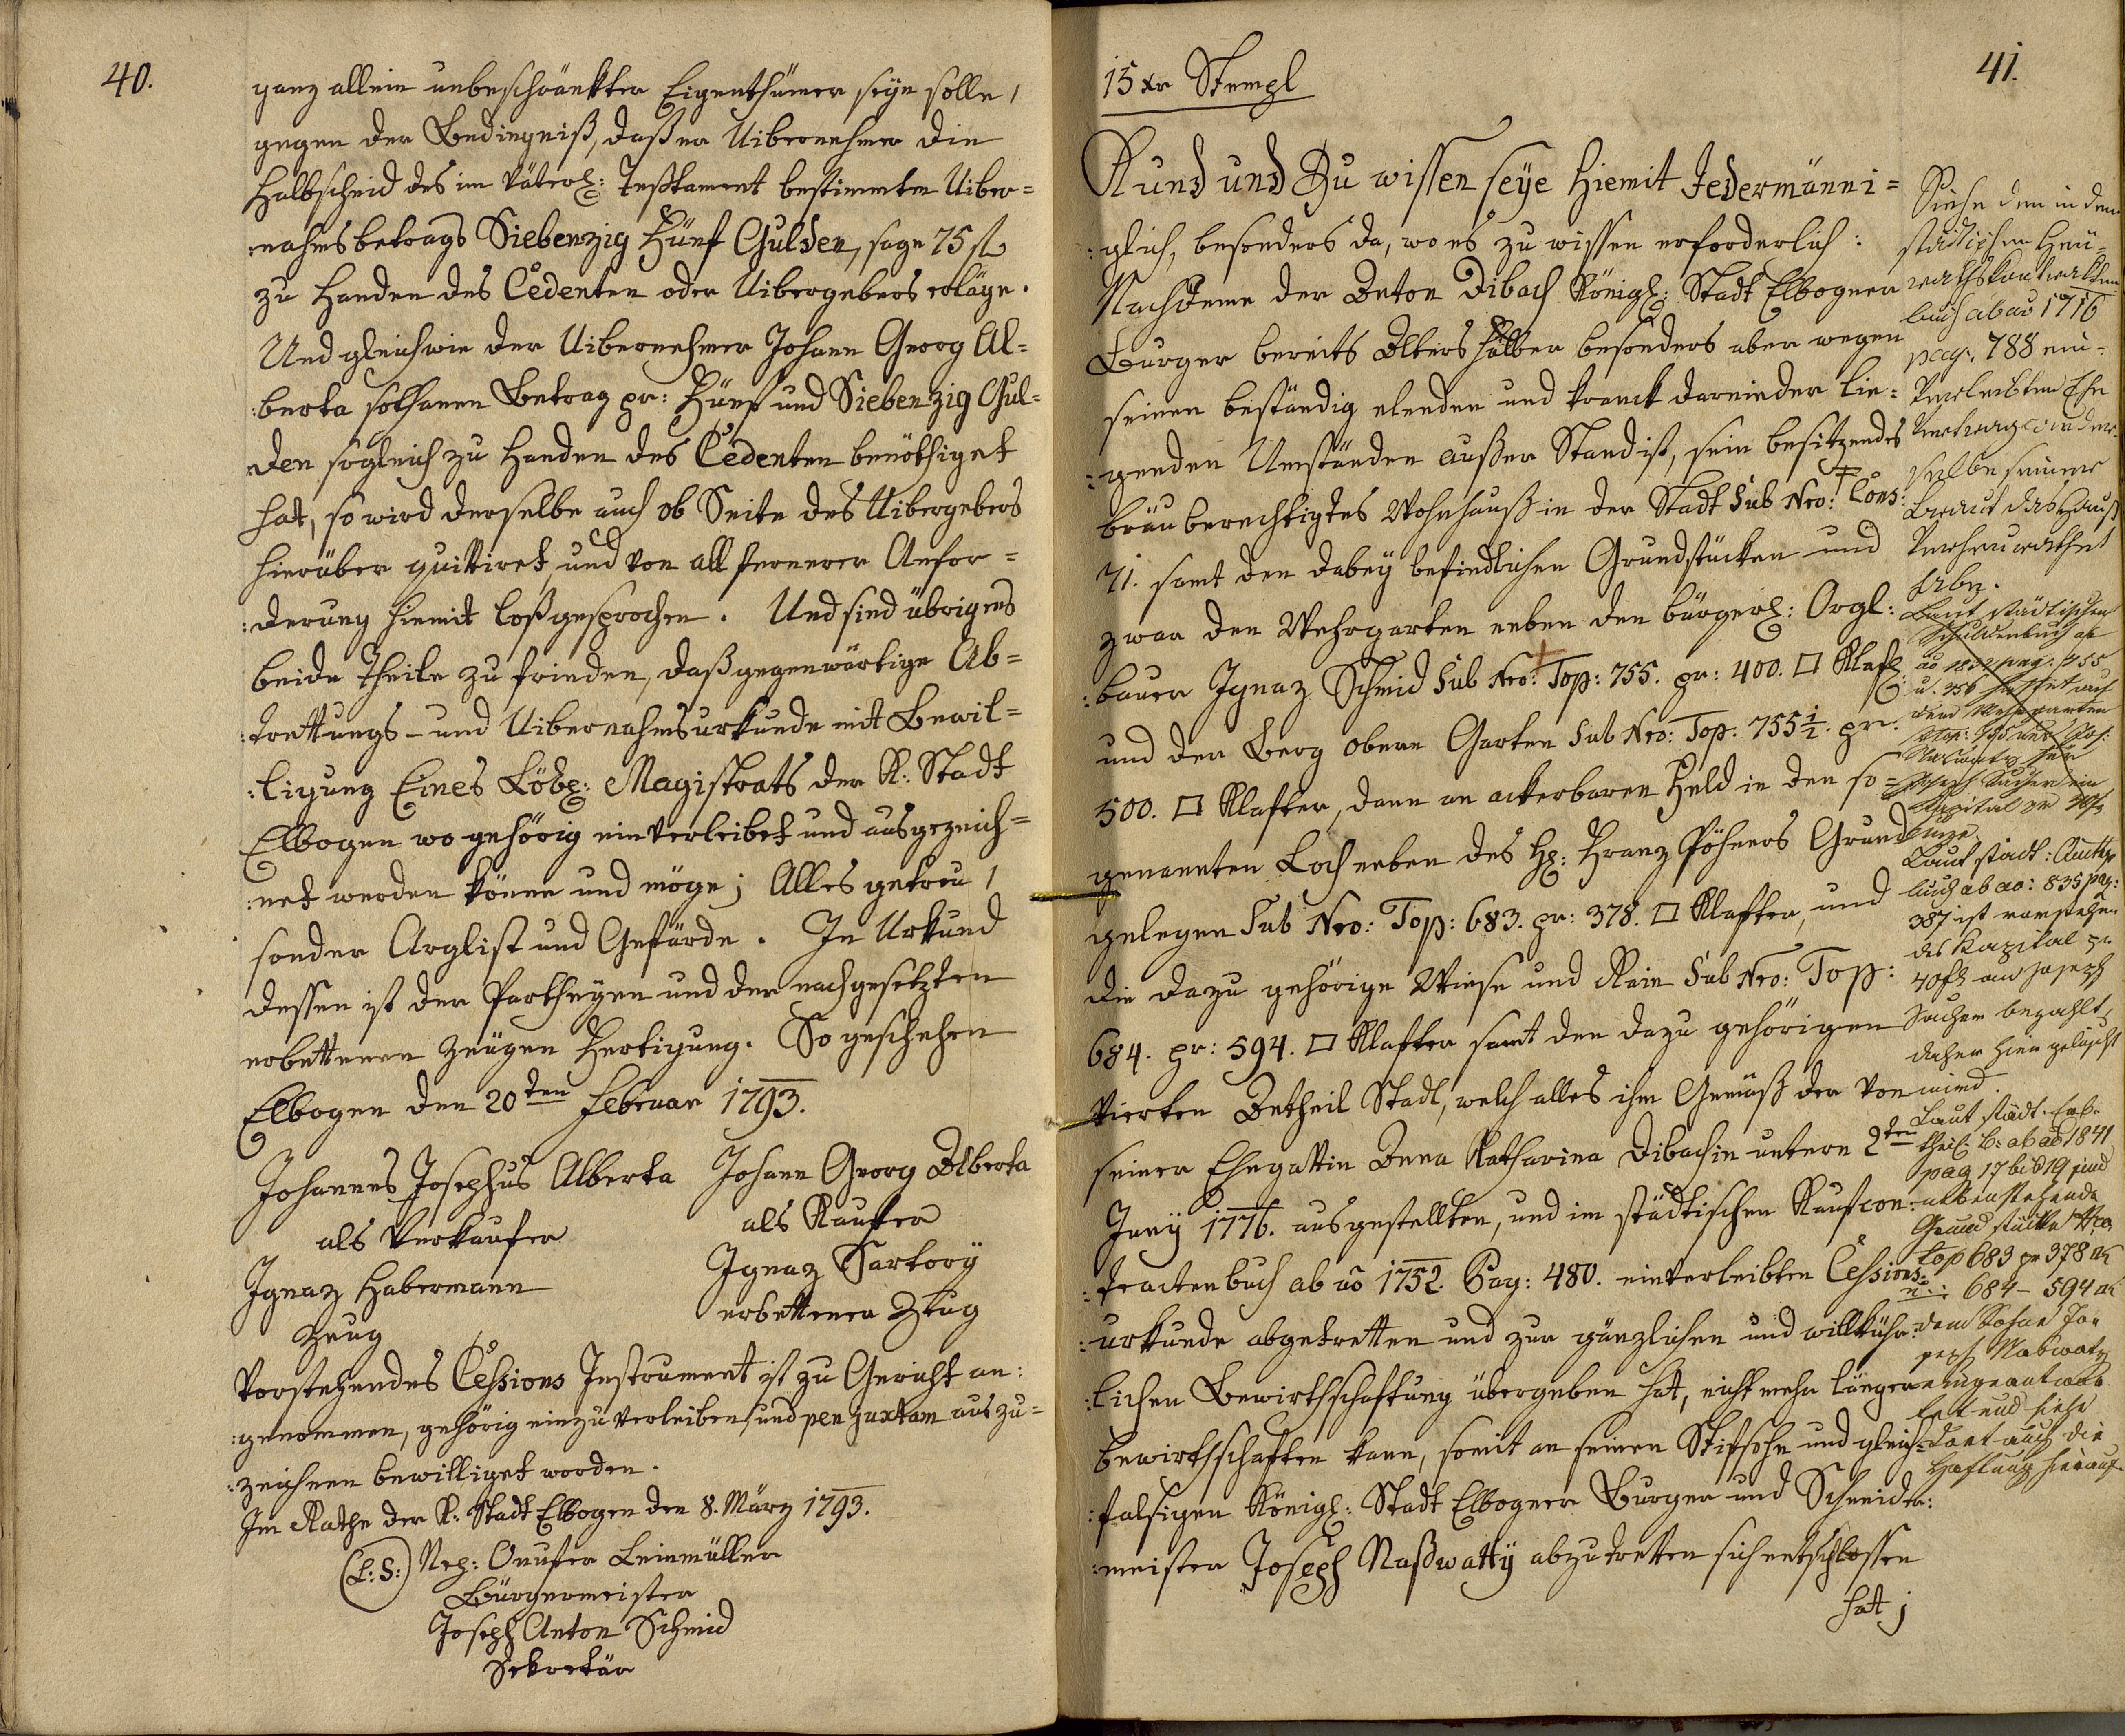 40.
ganz allein unbeschränkter Eigenthümer seyn solle,
gegen der Bedingniß, daß er Uibernehmer die
Halbscheid des im Väterl: Testament bestimmten Uiber=
nahmsbetrags Siebenzig Fünf Gulden, sage 75 fl
zu Handen des Cedenten oder Uibergebers erläge.
Und gleichwie der Uibernehmer Johann Georg Al=
:berta sothanen Betrag pr: Fünf und Siebenzig Gul=
den sogleich zu Handen des Cedenten behändiget
hat, so wird derselbe auch ob Seite des Uibergebers
hierüber quittiret, und von all fernerer Anfor=
:derung hiemit loßgesprochen. Und sind übrigens
beide Theile zu frieden, daß gegenwärtige Ab=
:trettungs- und Uibernahmsurkunde mit Bewil=
:ligung Eines Löbl: Magistrats der K: Stadt
Elbogen wo gehörig einverleibet und ausgezeich=
:net werden könne und möge; Alles getreu,
sonder Arglist und Gefärde. In Urkund
dessen ist der Partheyen und der nachgesetzten
erbettenen Zeugen Fertigung. So geschehen
Elbogen den 20ten Februar 1793.
Johannes Josephus Alberta Johann Georg Alberta
als Verkaufer als Kaufer
Ignaz Habermann Ignaz Sartory
Zeug erbettener Zeug
Vorstehendes Cessions Instrument ist zu Gericht an:
:genommen, gehörig einzuverleiben, und per juxtam auszu=
:zeichnen bewilliget worden.
Im Rathe der K: Stadt Elbogen den 8. März 1793.
(L:S:) Nep: Onufer Leinmüller
Bürgermeister
Joseph Anton Schmid
Sekretär
41.
15 xr Stempl
Kund und Zu wissen seye Hiemit Jedermänni=
:glich, besonders da, wo es zu wissen erforderlich:
Nachdeme der Anton Dibach Königl: Stadt Elbogner
Burger bereits Alters halber besonders aber wegen
seinen beständig elenden und kranck darnieder lie=
:genden Umständen außer Stand ist, sein besitzendes
bräuberechtigtes Wohnhauß in der Stadt Sub Nro: Cons:
71. samt den dabey befindlichen Grundstücken und
zwar den Wehrgarten neben den bürgerl: Orgl:
:bauer Ignaz Schmid Sub Nro: Top: 755. pr: 400. □ Klafl:
und den Berg obern Garten Sub Nro: Top: 755 1/2. pr.
500. □ Klafter, dann an ackerbaren Feld in den so=
genannten Loch neben des H: Franz Pöhners Grund
gelegen Sub Nro: Top: 683. pr: 378. □ Klafter, und
die dazu gehörige Wiese und Rain Sub Nro: Top:
684. pr: 594. □ Klafter samt den dazu gehörigen
vierten Antheil Stadl, welch alles ihm Gemäß der von
seiner Ehegattin Anna Katharina Dibachin untern 2ten
Juny 1776. ausgestellten, und im städtischen Kaufcon:
:tractenbuch ab aō 1752. Pag: 480. einverleibten Cessions:
:urkunde abgetretten und zur gänzlichen und willkühr:
:lichen Bewirthschaftung übergeben hat, nicht mehr länger
bewirthschaften kann, somit an seinen Stifsohn und gleich=
:falsigen Königl: Stadt Elbogner Burger und Schneider:
:meister Joseph Naßwatty abzutretten sich entschlossen
hat;
Siehe den in dem
städtischen Heu=
rathskontrakten
buch ab aō 1716
pag: 788 ein=
verleibten Ehe
vertrag wie der=
selbe seiner
Braut das Hauß
verheurathet
habe.
Laut städtischen
Schuldenbuch ab
u. 356 haftet auf
dem Wehrgarten
Joseph Sacher ein
Kapital pr 40 fl
Laut stadt:
buch ab ao: 835 pag:
387 ist vorstehen
des Kapital pr
40 fl an Joseph
Sacher bezahlt,
daher hier gelöscht
wird.
Laut städt. Erb=
theil: B: ab aō 1841
pag 17 bis 19 sind
nebenstehende
Grundstücke Nro
top 683 pr 378
684 – 594
dem Sohne Jo=
seph Naswaty
eingeantwor=
tet und siehe
dort auch die
Haftung hierauf.